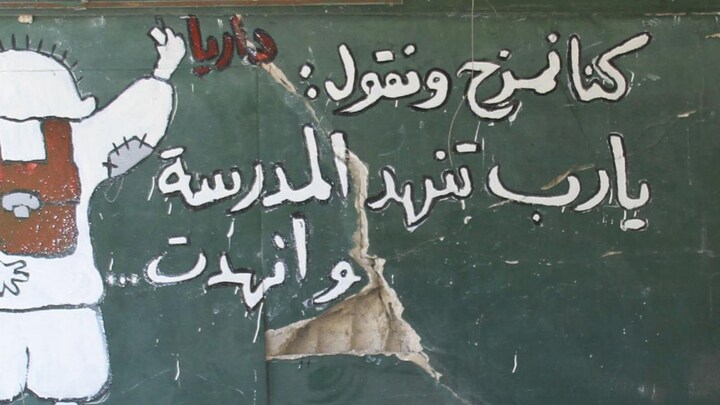 كنا نمزح ونقول:
يارب تنهد المدرسة
وانهدت...
داريا